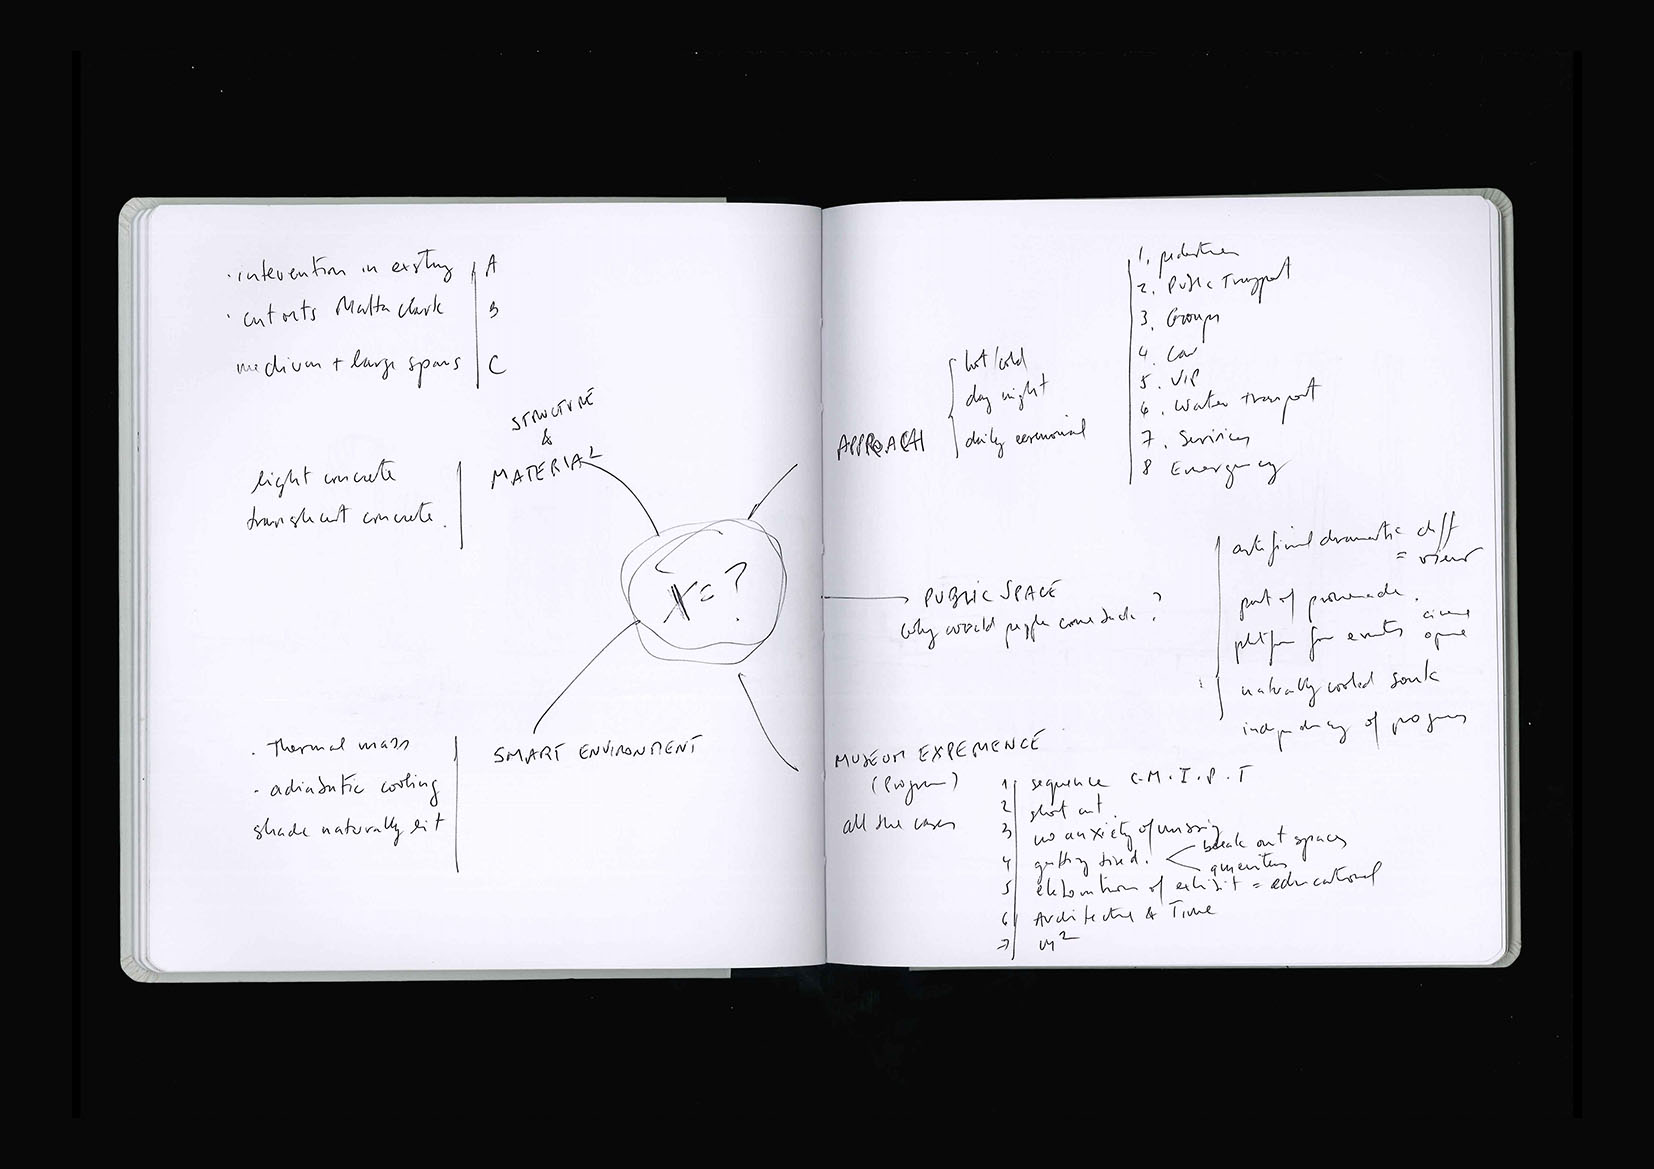 · intervention in existing | A
· cut outs Matta Clark | B
medium + large spans | C
STRUCTURE
&
MATERIAL
light concrete
translucent concrete.
X = ?
SMART ENVIRONMENT
· Thermal mass
· adiabatic cooling
shade naturally lit
APPROACH
hot/cold
day night
daily ceremonial
1. pedestrian
2. Public Transport
3. Groups
4. Car
5. VIP
6. Water transport
7. Services
8 Emergency
PUBLIC SPACE
Why would people come back?
artificial dramatic cliff
= view
part of promenade.
platform for events
naturally cooled souk
independency of program
MUSEUM EXPERIENCE
(Program)
all the cases
1 sequence C.M.I.P.T
2 short cut.
3 no anxiety of missing
4 getting tired. < break out spaces
5 of exhibit = educational
6 Architecture & Time
7 m²